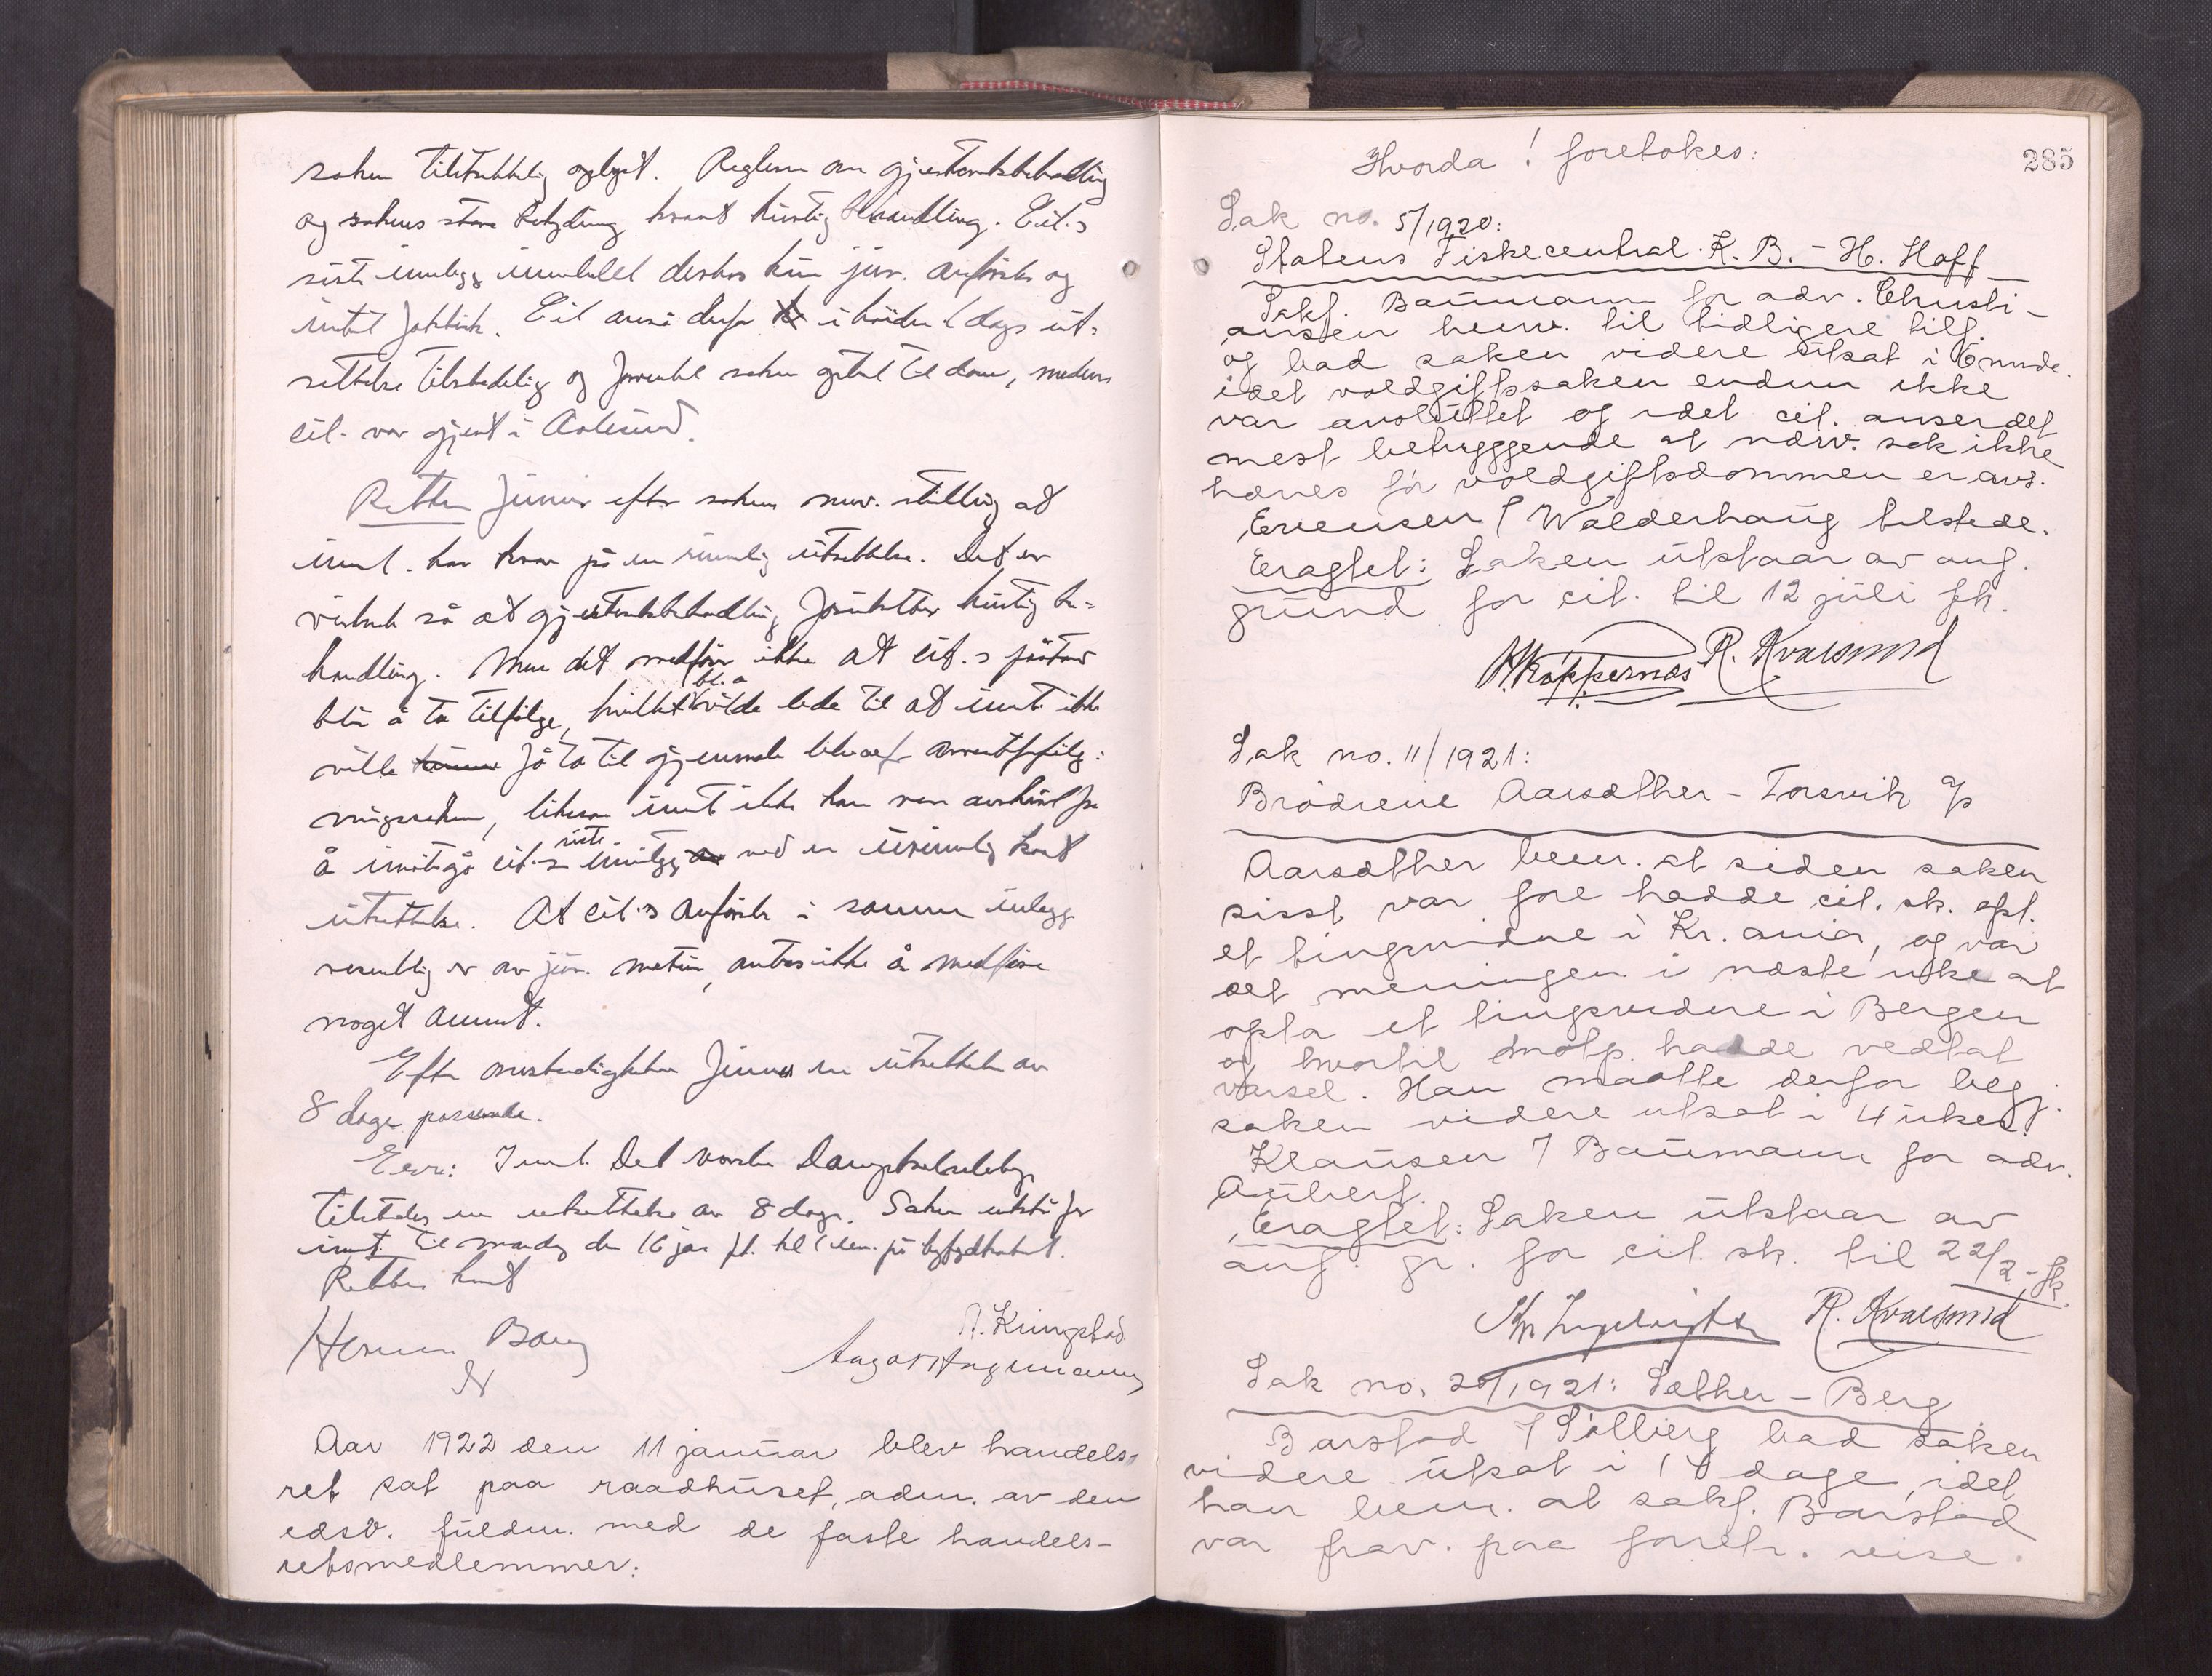 saken tilstrekkelig oplyst. Reglerne om gjesteretsbehandling
og sakens store betydning krævet hurtig behandling. Cit.s
siste innlegg inneholdt derhos kun jur. anførsler og
intet faktisk. Cit. anså derfor i høiden 1 dags ut-
settelse tilstedelig og forøvrig saken optat til dom, medens
cit. var gjest i Aalesund.
Retten finner efter sakens nuv. stilling at
innst. har krav på en rimelig utsettelse. Det er
virkelig så at gjesteretsbehandling forutsetter hurtig be-
handling. Men det medfører ikke at cit.s påstand
blir å ta tilfølge, hvilket bl.a. vilde lede til at innst. ikke
ville få ta til gjenmæle arrestforfølg-
ningssaken, likesom innst. ikke kan være avskåret fra
å imøtegå cit.s siste innlegg ved en urimelig kort
utsettelse. At cit.s anførsler i samme innlegg
vesentlig er av jur. natur, antas ikke å medføre
noget annet.
Efter omstendigheten finnes en utsettelse av
8 dage passende.
Eragt: Innst. Det norske Dampskibsselskap
tilstedes en utsettelse av 8 dage. Saken utstår for
innst. til mandag den 16 jan. ft. kl. på byfogdkontoret.
Retten hevet
Herman Bang
A. Kringstad
Aar 1922 den 11 januar blev handels-
ret sat paa raadhuset, adm. av den
edsv. fuldm. med de faste handels-
retsmedlemmer:
285
Hvorda! foretokes:
Sak no. 5/1920:
Statens Fiskecentral K. B. - H. Hoff
Sakf. Baumann for adv. Christi-
ansen henv. til tidligere tilf.
og bad saken videre utsat i 6 mndr.
idet voldgiftssaken endnu ikke
var avsluttet og idet cit. anser det
mest betryggende at nærv. sak ikke
hæves før voldgiftsdommen er avs.
Evensen f Walderhaug tilstede.
Eragtet: Saken utstaar av anf.
grund for cit. til 12 juli fk.
H. Kóppernæs R. Kvalsund
Sak no. 11/1921:
Brødrene Aarsæther - Forsvik A/s
Aarsæther bem. at siden saken
sisst var fore hadde cit. sk. opt.
et tingsvidne i Kr.ania, og var
det meningen i næste uke at
opta et tingsvidne i Bergen
og hvortil motp. hadde vedtat
varsel. Han maatte derfor beg.
saken videre utsat i 4 uker.
Klausen f Baumann for adv.
Aubert.
Eragtet: Saken utstaar av
anf. gr. for cit. sk. til 22/2 fk.
R. Kvalsund
Sak no. 20/1921: Sæther - Berg
Barstad f Solberg bad saken
videre utsat i 14 dage, idet
han bem. at sakf. Barstad
var frav. paa forretn. reise.